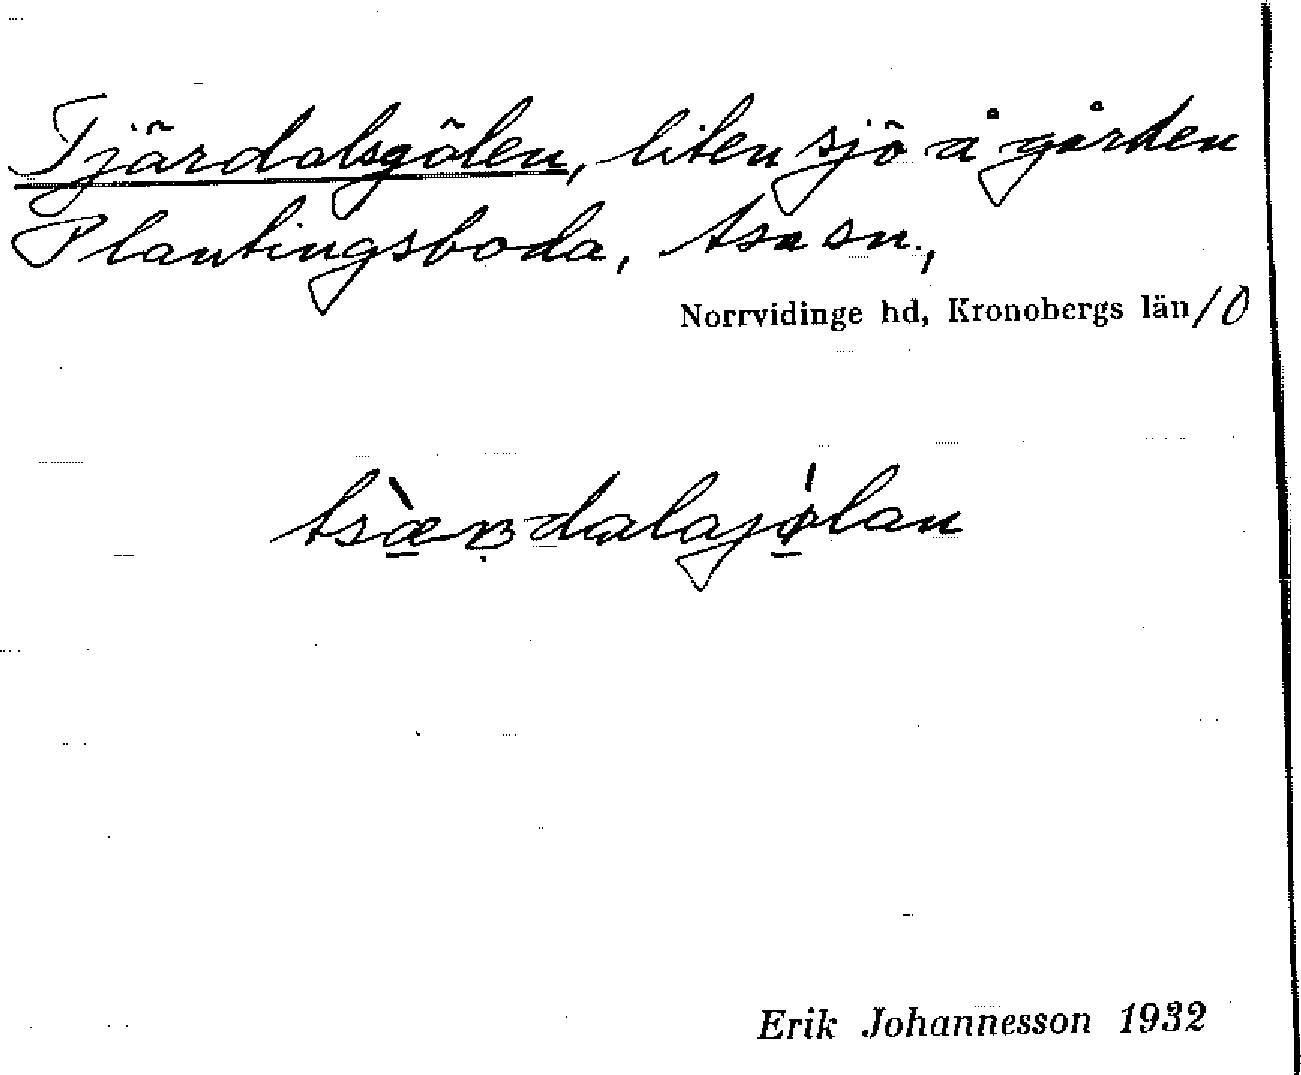 Tjärdalsgölen, liten sjö å gården
Plantingsboda, Asa sn.,
Norrvidinge hd, Kronobergs län/0
Erik Johannesson 1932